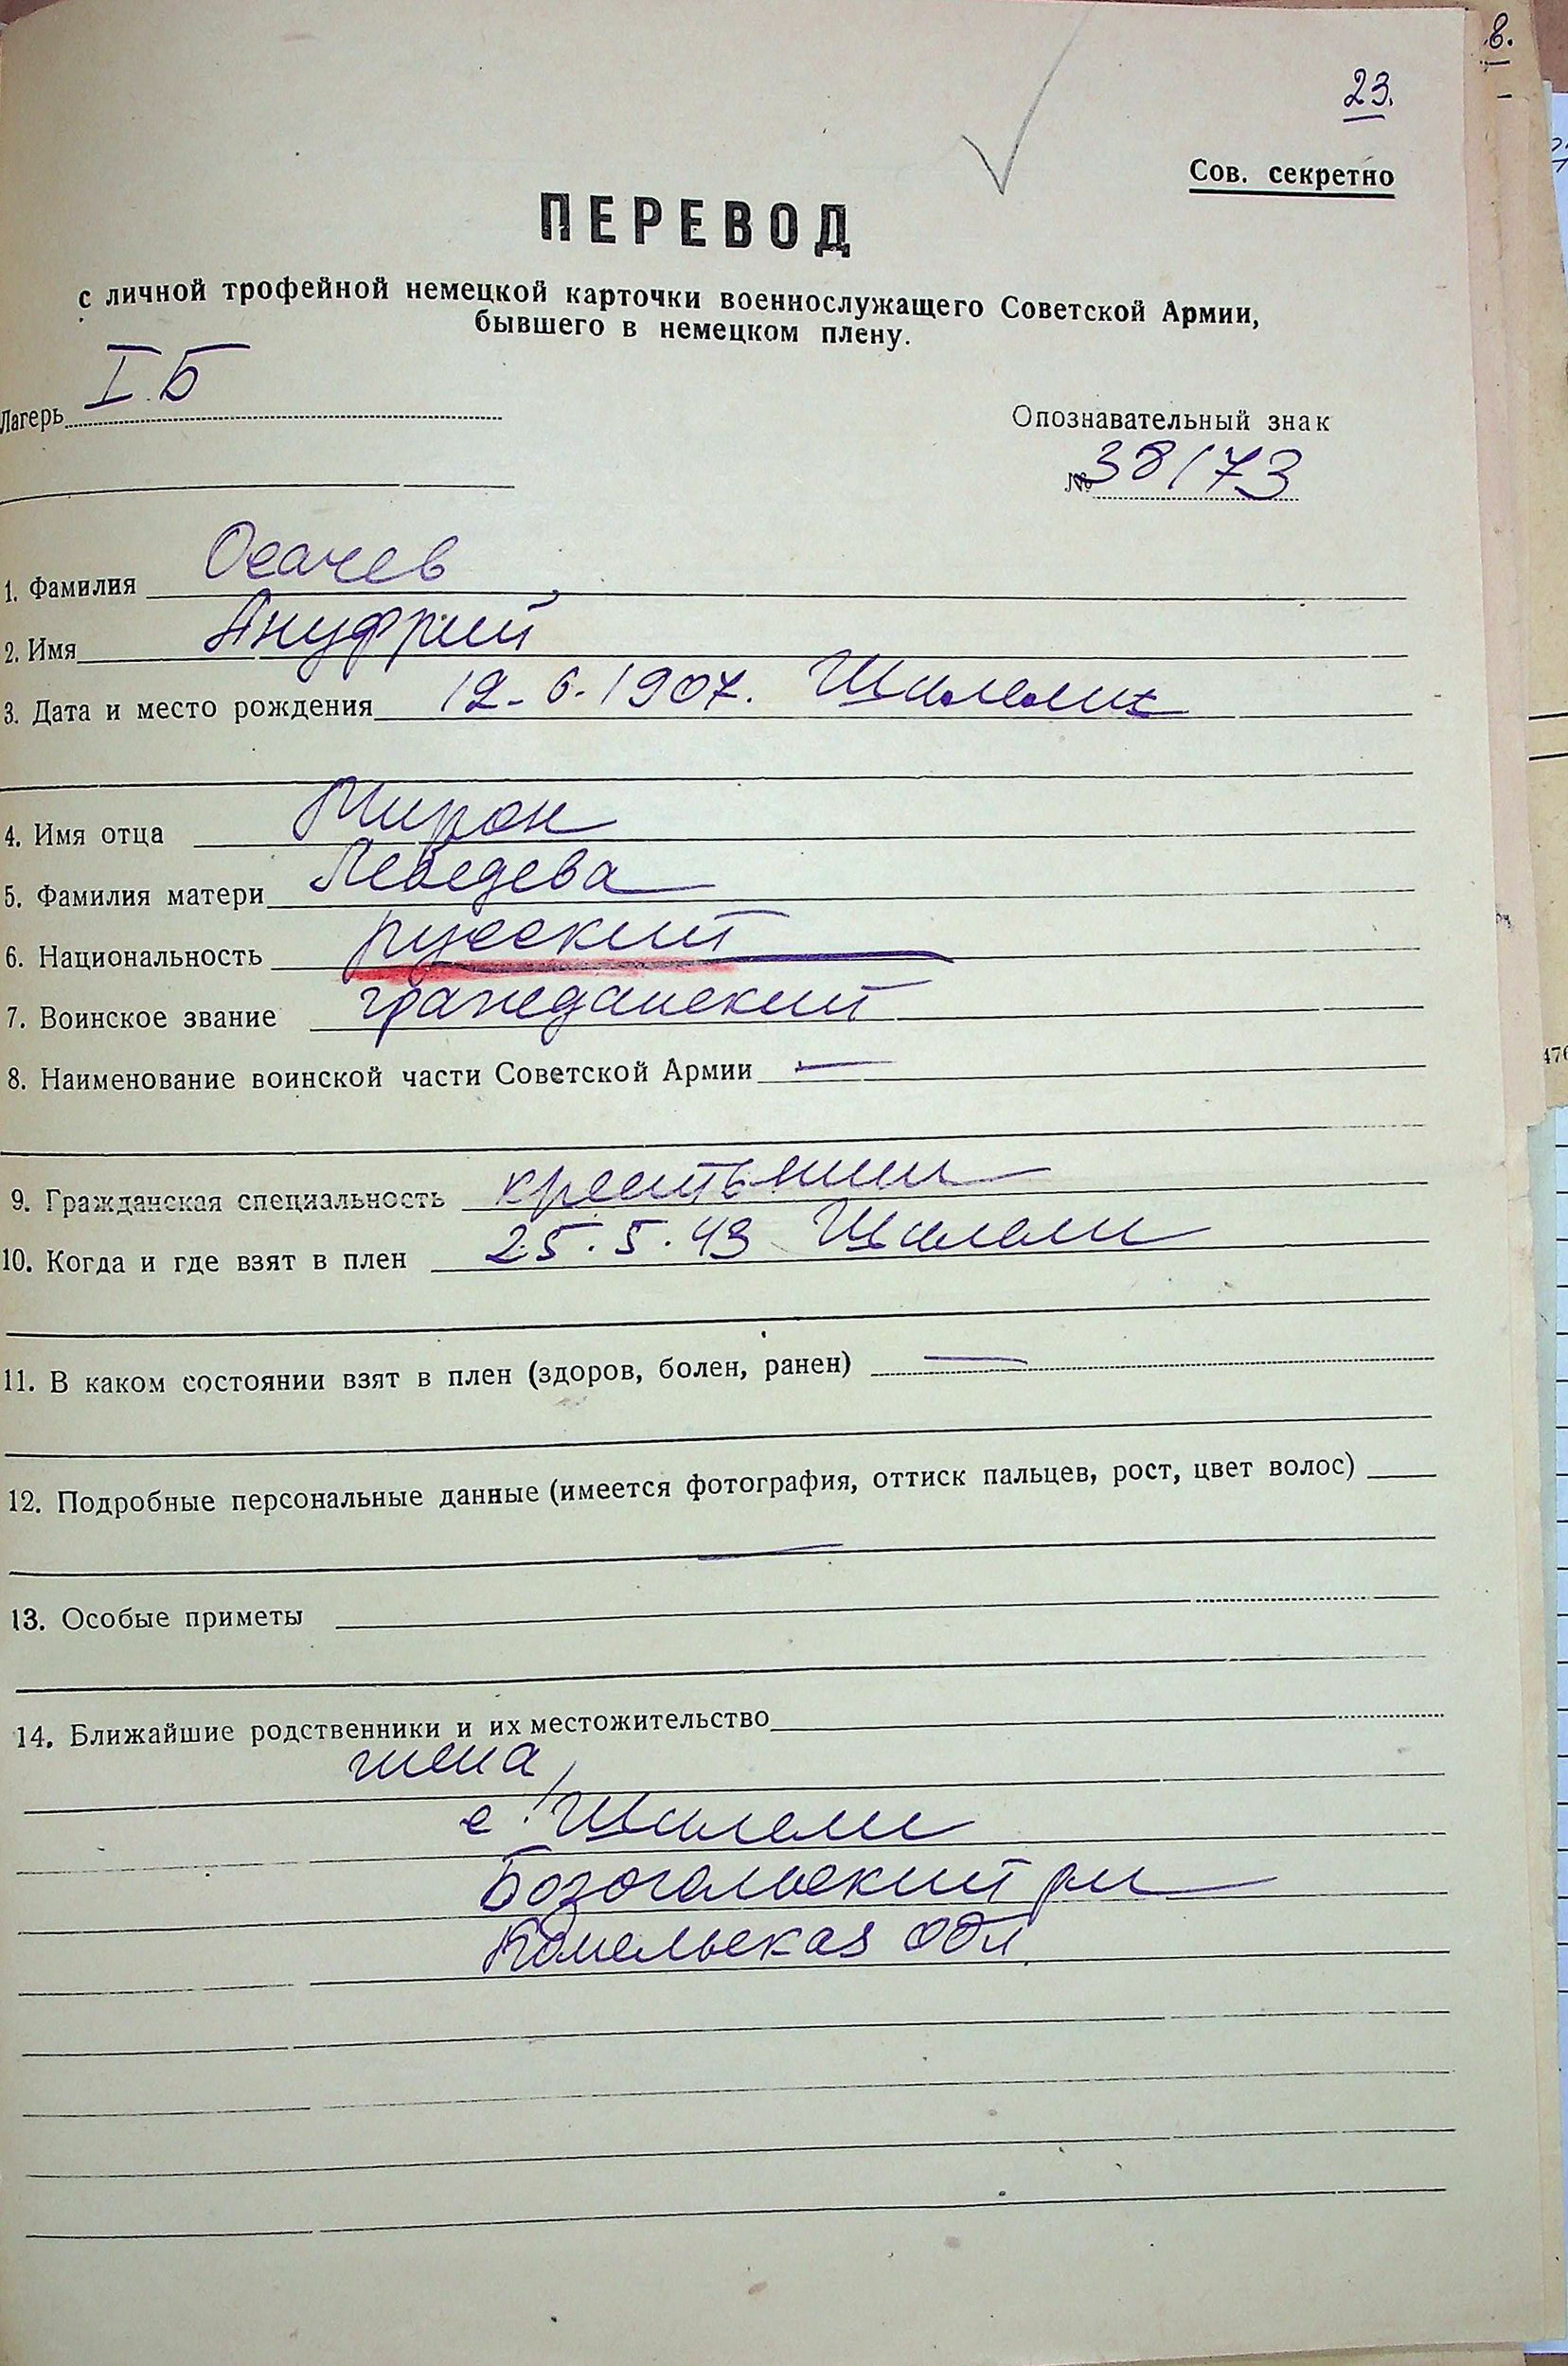 8.
23.
Сов. секретно
ПЕРЕВОД
с личной трофейной немецкой карточки военнослужащего Советской Армии,
бывшего в немецком плену.
Лагерь I Б
Опознавательный знак
№ 38/73
1. Фамилия Осачев
2. Имя Ануфрий
3. Дата и место рождения 12-6-1907.
4. Имя отца Мирон
5. Фамилия матери Лебедева
6. Национальность русский
7. Воинское звание гражданский
8. Наименование воинской части Советской Армии —
9. Гражданская специальность
10. Когда и где взят в плен 25.5.43
11. В каком состоянии взят в плен (здоров, болен, ранен) —
12. Подробные персональные данные (имеется фотография, оттиск пальцев, рост, цвет волос)
—
13. Особые приметы
14. Ближайшие родственники и их местожительство
жена,
с.
обл.